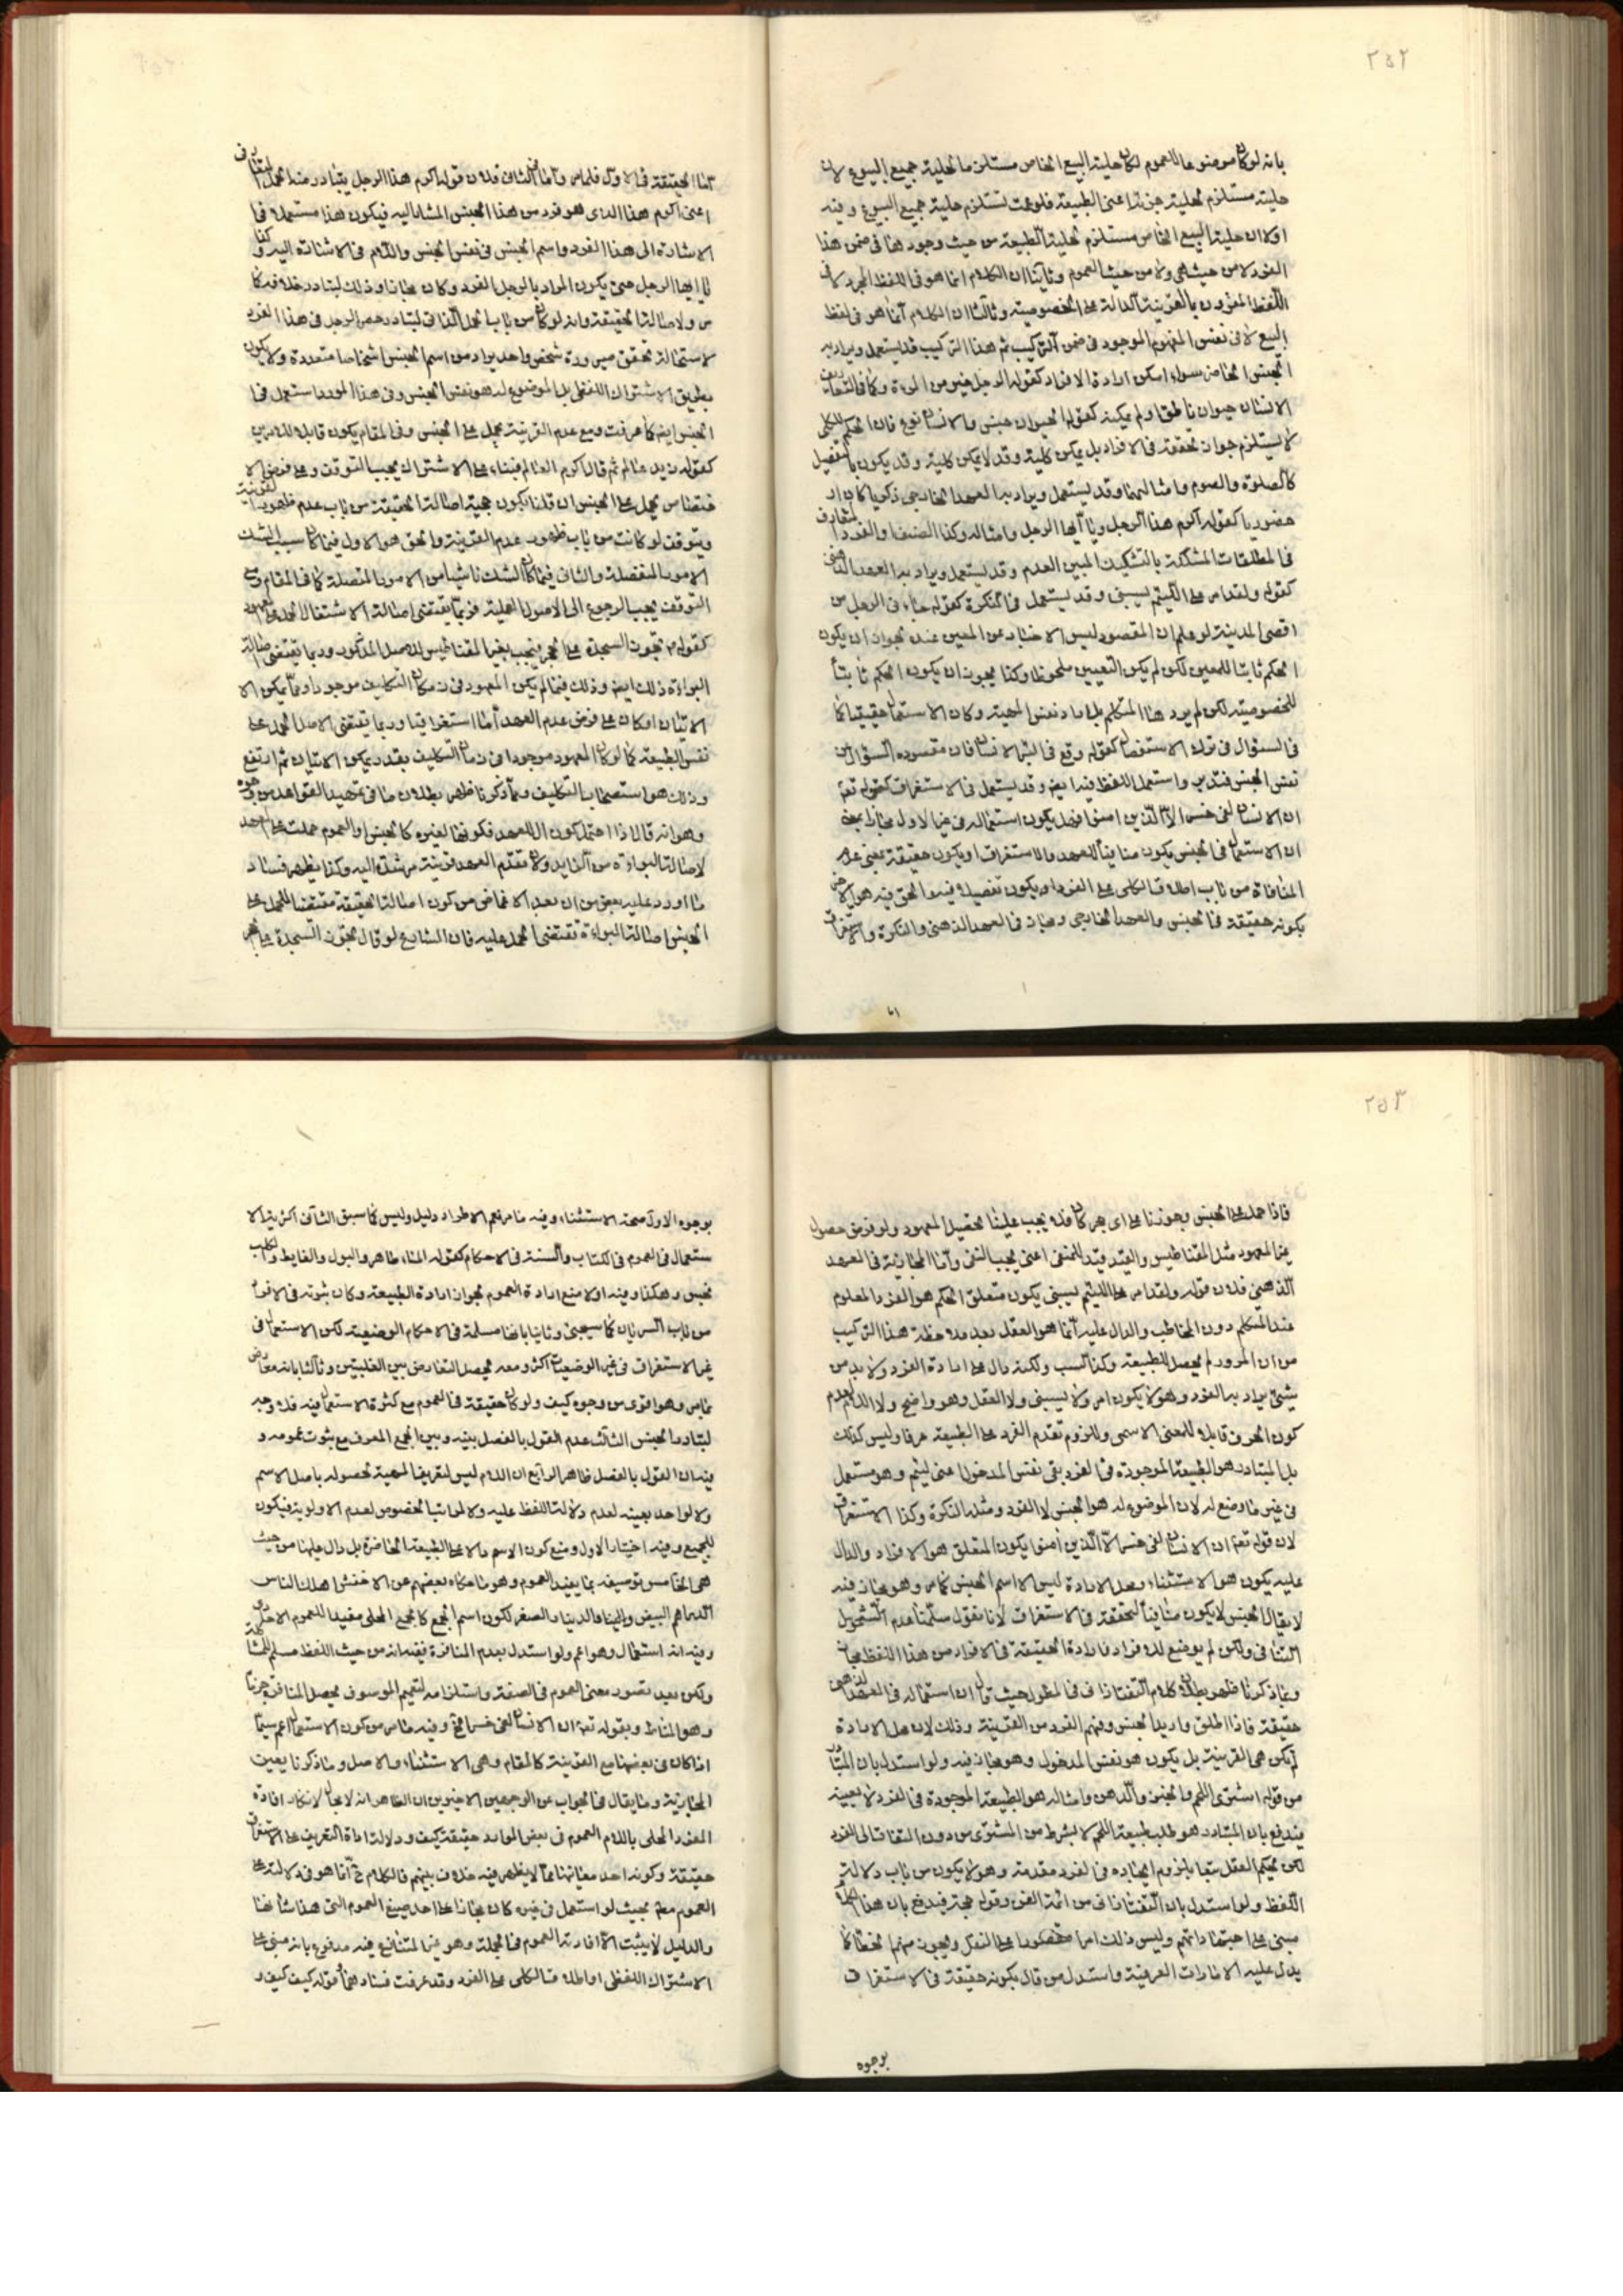 ٢٥٢
بانه لو كان موضوعا للعموم لكان حلية البيع الخاص مستلزما لحلية جميع البيوع لان
حليته مستلزم لحلية جزئه اعنى الطبيعة فلو عمت تستلزم حلية جميع البيوع وفيه
اولا ان حلية البيع الخاص مستلزم لحلية الطبيعة من حيث وجودها فى ضمن هذا
الفرد لا من حيث هى ولا من حيث العموم وثانيا ان الكلام انما هو فى اللفظ المجرد لا فى
اللفظ المقرون بالقرينة الدالة على الخصوصية وثالثا ان الكلام انما هو فى لفظ
البيع لا فى نفس المفهوم الموجود فى ضمن التركيب ثم هذا التركيب قد يستعمل ويراد به
الجنس الخاص سواء امكن ارادة الافراد كقوله الرجل خير من المرءة وكما فى التعاريف
الانسان حيوان ناطق او لم يمكنه كقوله الحيوان جنس والانسان نوع فان الحكم للكلى
لا يستلزم جوازه تحققه فى الافراد بل يمكن كلية وقد لا يمكن كلية وقد يكون بالتفصيل
كالصلوة والصوم وامثالهما وقد يستعمل ويراد به العهد الخارجى ذكريا كان او
حضوريا كقوله اكرم هذا الرجل ويا ايها الرجل وامثاله وكذا الصنف والفرد المتعارف
فى المطلقات المشككة بالتشكيك المبين العدم وقد يستعمل ويراد به العهد الذهنى
كقوله ولقد امر على اللئيم يسبنى وقد يستعمل فى النكرة كقوله جاء فى الرجل من
اقصى المدينة لو علم ان المقصود ليس الاخبار عن المعين عنده لجواز ان يكون
الحكم ثابتا للمعين لكن لم يكن التعيين ملحوظا وكذا يجوز ان يكون الحكم ثابتا
للخصوصية لكن لم يرد هذا المتكلم بل اراد نفس المهية وكان الاستعمال حقيقيا كما
فى السؤال فى ترك الاستفصال كقوله وقع فى البئر الانسان فان مقصوده السؤال من
نفس الجنس فتدبر واستعمل اللفظ فيه ايضا وقد يستعمل فى الاستغراق كقوله تعالى
ان الانسان لفى خسر الا الذين امنوا فهل يكون استعماله فى غير الاول مجازا بمعنى
ان الاستعمال فى الجنس يكون منافيا للعهد والاستغراق او يكون حقيقة بمعنى عدم
المنافاة من باب اطلاق الكلى على الفرد او يكون تفصيل فيه والحق فيه هو الاخير
بكونه حقيقة فى الجنس والعهد الخارجى ومجاز فى العهد الذهنى والنكرة والاستغراق
اما الحقيقة فى الاول فلما مر واما فى الثانى فلان قوله اكرم هذا الرجل يتبادر منه الحمل المتعارف
اعنى اكرم هذا الذى هو فرد من هذا الجنس المشار اليه فيكون هذا مستعملا فى
الاشارة الى هذا الفرد واسم الجنس فى نفس الجنس واللام فى الاشارة اليه وكذا
يا ايها الرجل حتى يكون المراد بالرجل الفرد وكان مجازا وذلك لتبادر خلافه كما
مر ولاصالة الحقيقة وانه لو كان من باب الحمل الذاتى لتبادر حصر الرجل فى هذا الفرد
لاستحالة تحقق صيرورة شخص واحد يراد من اسم الجنس اشخاصا متعددة ولا يكون
بطريق الاشتراك اللفظى بل الموضوع له هو نفس الجنس وفى هذا المورد استعمل فى
الجنس ايضا كما عرفت ومع عدم القرينة يحمل على الجنس وفى المقام يكون قابلا للامرين
كقوله زيد عالم ثم قال اكرم العالم فبناء على الاشتراك يجب التوقف وعلى فرض الا
ختصاص يحمل على الجنس ان قلنا بكون حجية اصالة الحقيقة من باب عدم ظهور القرينة
ويتوقف لو كانت من باب ظهور عدم القرينة والحق هو الاول فيما كان سبب الشك
الامور المنفصلة والثانى فيما كان الشك ناشيا من الامور المتصلة كما فى المقام وعلى
التوقف يجب الرجوع الى الاصول العملية فربما يقتضى اصالة الاشتغال الحمل على العهد
كقوله لا تجوز السجدة على الحجر فيجب بغير المقناطيس للاصل المذكور وربما يقتضى اصالة
البراءة ذلك ايضا وذلك فيما لم يكن المعهود فى زمان التكليف موجودا وممّا يمكن الا
الاتيان او كان على فرض عدم العهد اما استغراقيا وربما تقتضى الاصل الحمل على
نفس الطبيعة كما لو كان المعهود موجودا فى زمان التكليف بقدر يمكن الاتيان ثم ارتفع
وذلك هو استصحاب التكليف ومما ذكرنا ظهر بطلان ما فى تمهيد القواعد من وجوه
وهو انه قال اذا احتمل كون ال للعهد فكونها لغيره كالجنس او العموم حملت على العهد
لاصالة البراءة من الزايد ولان تقدم العهد قرينة مرشدة اليه وكذا يظهر فساد
ما اورد عليه بعض من ان بعد الاغماض من كون اصالة الحقيقة مقتضيا للحمل على
الجنس اصالة البراءة تقتضى الحمل عليه فان الشارع لو قال تجوز السجدة على الحجر
٢٥٣
فاذا حمل على الجنس وجوزنا على اى حجر كان فلا يجب علينا تحصيل المعهود ولو فرض حصول
غير المعهود مثل المقناطيس والقيد قيدا للمنفى اعنى يجب النفى واما المجازية فى العهد
الذهنى فلان قوله ولقد امر على اللئيم يسبنى يكون متعلق الحكم هو الفرد المعلوم
عند المتكلم دون المخاطب والدال عليه انما هو العقل بعد ملاحظة هذا التركيب
من ان المرور لم يحصل للطبيعة وكذا السب ولكنه دال على ارادة الفرد ولا بد من
شيئ يراد به الفرد وهو لا يكون امر ولا يسبنى ولا العقل وهو واضح ولا اللام لعدم
كون الحرف قابلا للمعنى الاسمى وللزوم تقدم الفرد على الطبيعة عرفا وليس كذلك
بل المتبادر هو الطبيعة الموجودة فى الفرد بقى نفس المدخول اعنى لئيم وهو مستعمل
فى غير ما وضع له لان الموضوع له هو الجنس لا الفرد ومثله النكرة وكذا الاستغراق
لان قوله تعالى ان الانسان لفى خسر الا الذين امنوا يكون المتعلق هو الافراد والدال
عليه يكون هو الاستثناء ومحل الارادة ليس الا اسم الجنس كما مر وهو مجاز فيه
لا يقال الجنس لا يكون منافيا لتحققه فى الاستغراق لانا نقول سلمنا عدم الشمول
التنافى ولكن لم يوضع للافراد فارادة الحقيقة فى الافراد من هذا اللفظ مجاز
وبما ذكرنا ظهر بطلان كلام التفتازانى فى المطول حيث قال ان استعماله فى العهد الذهنى
حقيقة فاذا اطلق واريد الجنس وفهم الفرد من القرينة وذلك لان محل الارادة
لم يكن هى القرينة بل يكون هو نفس المدخول وهو مجاز فيه ولو استدل بان المتبادر
من قوله اشترى اللحم والخبز والدهن وامثاله هو الطبيعة الموجودة فى الفرد لا بعينه
يندفع بان المتبادر هو طلب طبيعة اللحم لا بشرط من المشترى من دون التفات الى الفرد
لكن يحكم العقل تبعا بلزوم ايجاده فى الفرد مقدمة وهو لا يكون من باب دلالة
اللفظ ولو استدل بان التفتازانى من ائمة الفن وقوله حجة فيدفع بان هذا الكلام
مبنى على اجتهاداتهم وليس ذلك امرا مقصورا على النقل ويجوز منهم الخطا كما
يدل عليه الامارات العرفية واستدل من قال بكونه حقيقة فى الاستغراق
بوجوه
بوجوه الاول صحة الاستثناء وفيه ما مر نعم الاطراد دليل وليس كما سبق الثانى اكثرية الا
ستعمال فى العموم فى الكتاب والسنة فى الاحكام كقوله الماء طاهر والبول والغايط والكلب
نجس وهكذا وفيه اولا منع ارادة العموم لجواز ارادة الطبيعة وكان ثبوته فى الافراد
من باب السريان كما سيجئ وثانيا بانها مسلمة فى الاحكام الوضعية لكن الاستعمال فى
غير الاستغراق فى غير الوضعيات اكثر ومعه يحصل التعارض بين الغلبتين وثالثا بانه معارض
بما مر وهو اقوى من وجوه كيف ولو كان حقيقة فى العموم مع كثرة الاستعمال فيه فلا وجه
لتبادر الجنس الثالث عدم القول بالفصل بينه وبين الجمع المعرف مع ثبوت عمومه و
فيه ان القول بالفصل ظاهر الرابع ان اللام ليس لتعريف المهية لحصوله باصل الاسم
ولا لواحد بعينه لعدم دلالة اللفظ عليه ولا لمراتب الخصوص لعدم الاولوية فيكون
للجميع وفيه اختيار الاول ومنع كون الاسم دالا على الطبيعة الحاضرة بل دال عليها من حيث
هى الخامس توصيفه بما يفيد العموم وهو ما حكاه بعضهم عن الاخفش اهلك الناس
الدراهم البيض والدينار الصفر لكون اسم الجمع كالجمع المحلى مفيدا للعموم الافرادى
وفيه انه استعمال وهو اعم ولو استدل بعدم المنافرة يقيد انه من حيث اللفظ مسلم للمشاكلة
ولكن بعد تصور معنى العموم فى الصفة واستلزامه لتعميم الموصوف يحصل المنافرة جزما
وهو المناط وبقوله تعالى ان الانسان لفى خسر الخ وفيه ما مر من كون الاستعمال اعم سيما
اذا كان فى بعضها مع القرينة كالمقام وهى الاستثناء والاصل وما ذكرنا يعين
المجازية وما يقال فى الجواب عن الوجهين الاخيرين ان الظاهر انه لا مجال لانكار افادة
المفرد المحلى باللام العموم فى بعض الموارد حقيقة كيف ودلالة اداة التعريف على الاستغراق
حقيقة وكونه احد معانيها مما لا يظهر فيه خلاف بينهم فالكلام ح انما هو فى دلالته على
العموم مطلقا بحيث لو استعمل فى غيره كان مجازا على احد صيغ العموم التى هذا شانها
والدليل لا يثبت الا افادته العموم فى الجملة وهو غير المتنازع فيه مدفوع بانه مبنى على
الاشتراك اللفظى او اطلاق الكلى على الفرد وقد عرفت فسادهما قوله كيف كيف و